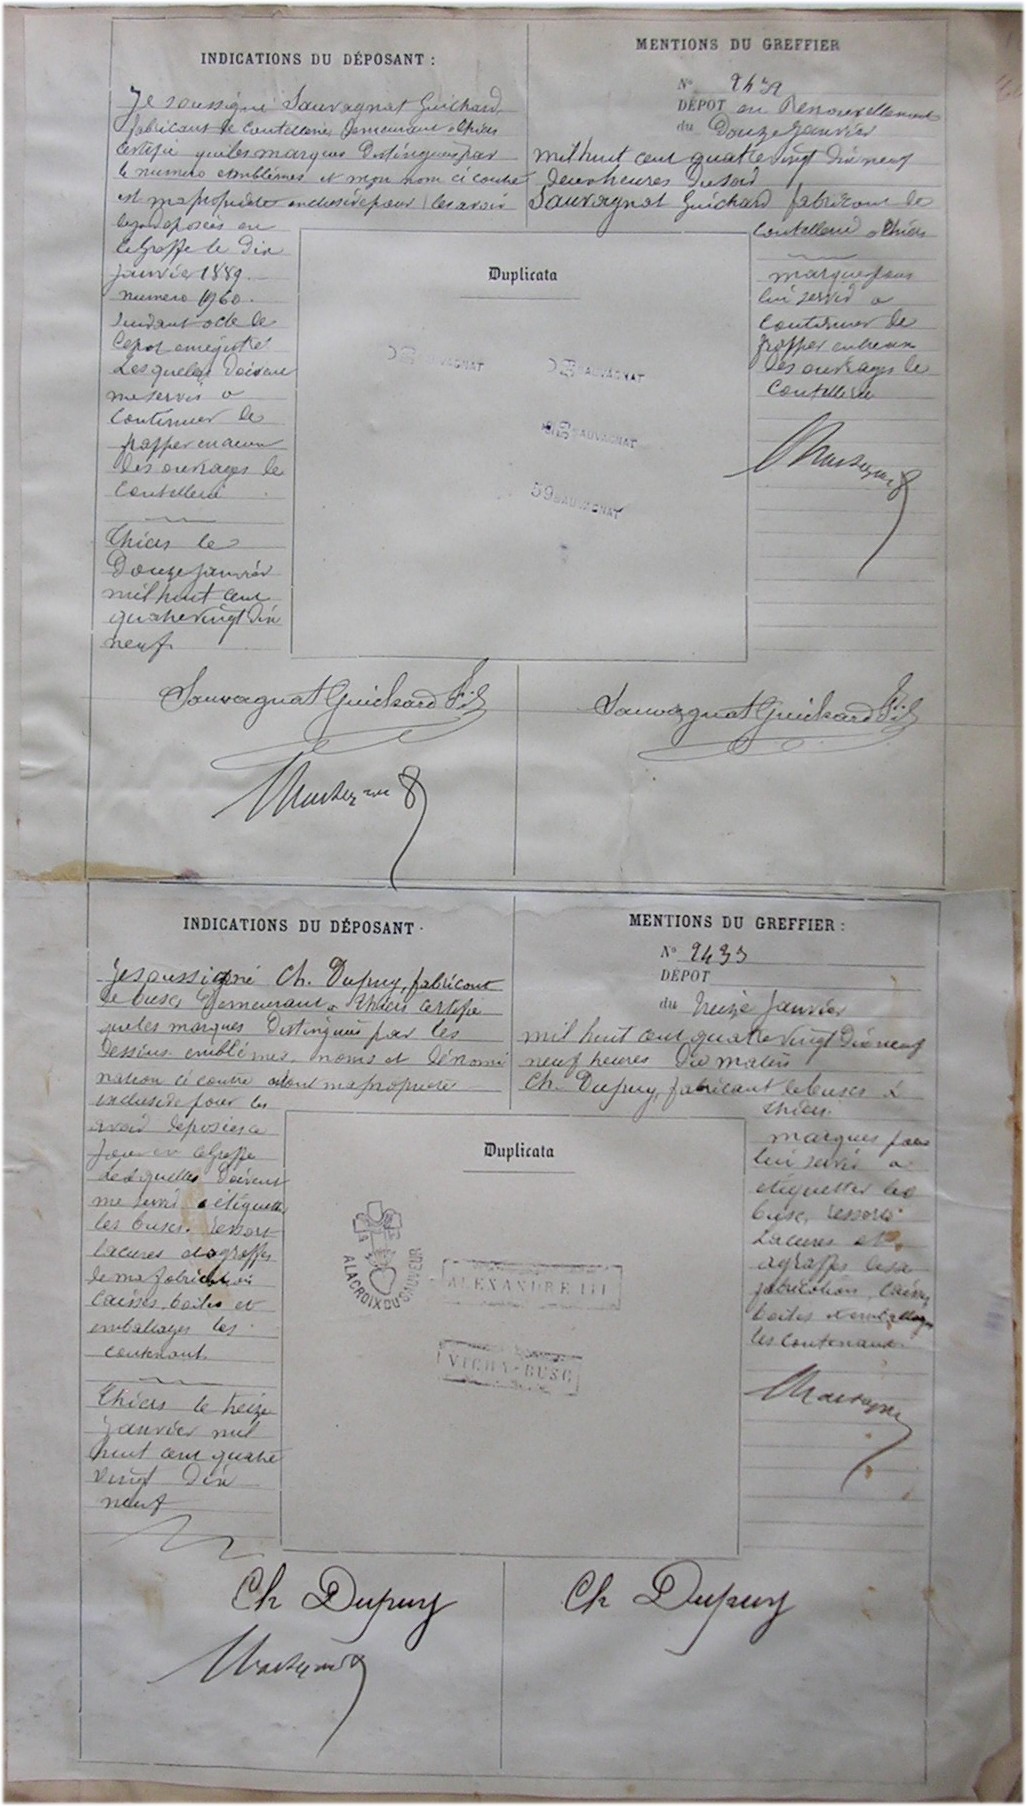 INDICATIONS DU DÉPOSANT :
Je soussigné Sauvagnat Guichard,
fabricant de coutellerie demeurant à Thiers
certifie que les marques distinguées par
le numéro emblèmes et mon nom ci contre
est ma propriété exclusive pour les avoir
déposées au
Greffe le dix
janvier 1889
numéro 1960.
suivant acte de
dépôt enregistré
Lesquelles doivent
me servir à
continuer de
frapper
les ouvrages de
coutellerie
Thiers le
Douze janvier
mil huit cent
quatre vingt dix
neuf
MENTIONS DU GREFFIER
N° 2432
DÉPOT en Renouvellement
du Douze janvier
mil huit cent quatre vingt dix neuf
deux heures du soir
Sauvagnat Guichard fabricant de
coutellerie à Thiers
marques pour
lui servir à
continuer de
frapper
les ouvrages de
coutellerie
Duplicata
SAUVAGNAT
SAUVAGNAT
59 SAUVAGNAT
Sauvagnat Guichard Fils
Sauvagnat Guichard Fils
INDICATIONS DU DÉPOSANT
Je soussigné Ch. Dupuy, fabricant
de buscs demeurant à Thiers certifie
que les marques distinguées par les
dessins emblèmes, noms et dénomi
nation ci contre sont ma propriété
exclusive pour les
avoir déposées ce
jour au Greffe
Lesquelles doivent
me servir à étiqueter
les buscs, ressorts
lacures et agraffes
de ma fabrication
caisses, boites et
emballages les
contenant.
Thiers le treize
janvier mil
huit cent quatre
vingt dix
neuf
MENTIONS DU GREFFIER :
N° 2433
DÉPOT
du treize janvier
mil huit cent quatre vingt dix neuf
neuf heures du matin
Ch. Dupuy, fabricant de buscs à
Thiers.
marques pour
lui servir à
étiquetter les
buscs, ressorts
Lacures et
agraffes de sa
fabrication, caisses
boites et emballages
les contenant.
Duplicata
A LA CROIX DU SAUVEUR
ALEXANDRE III
VICHY-BUSC
Ch Dupuy
Ch Dupuy